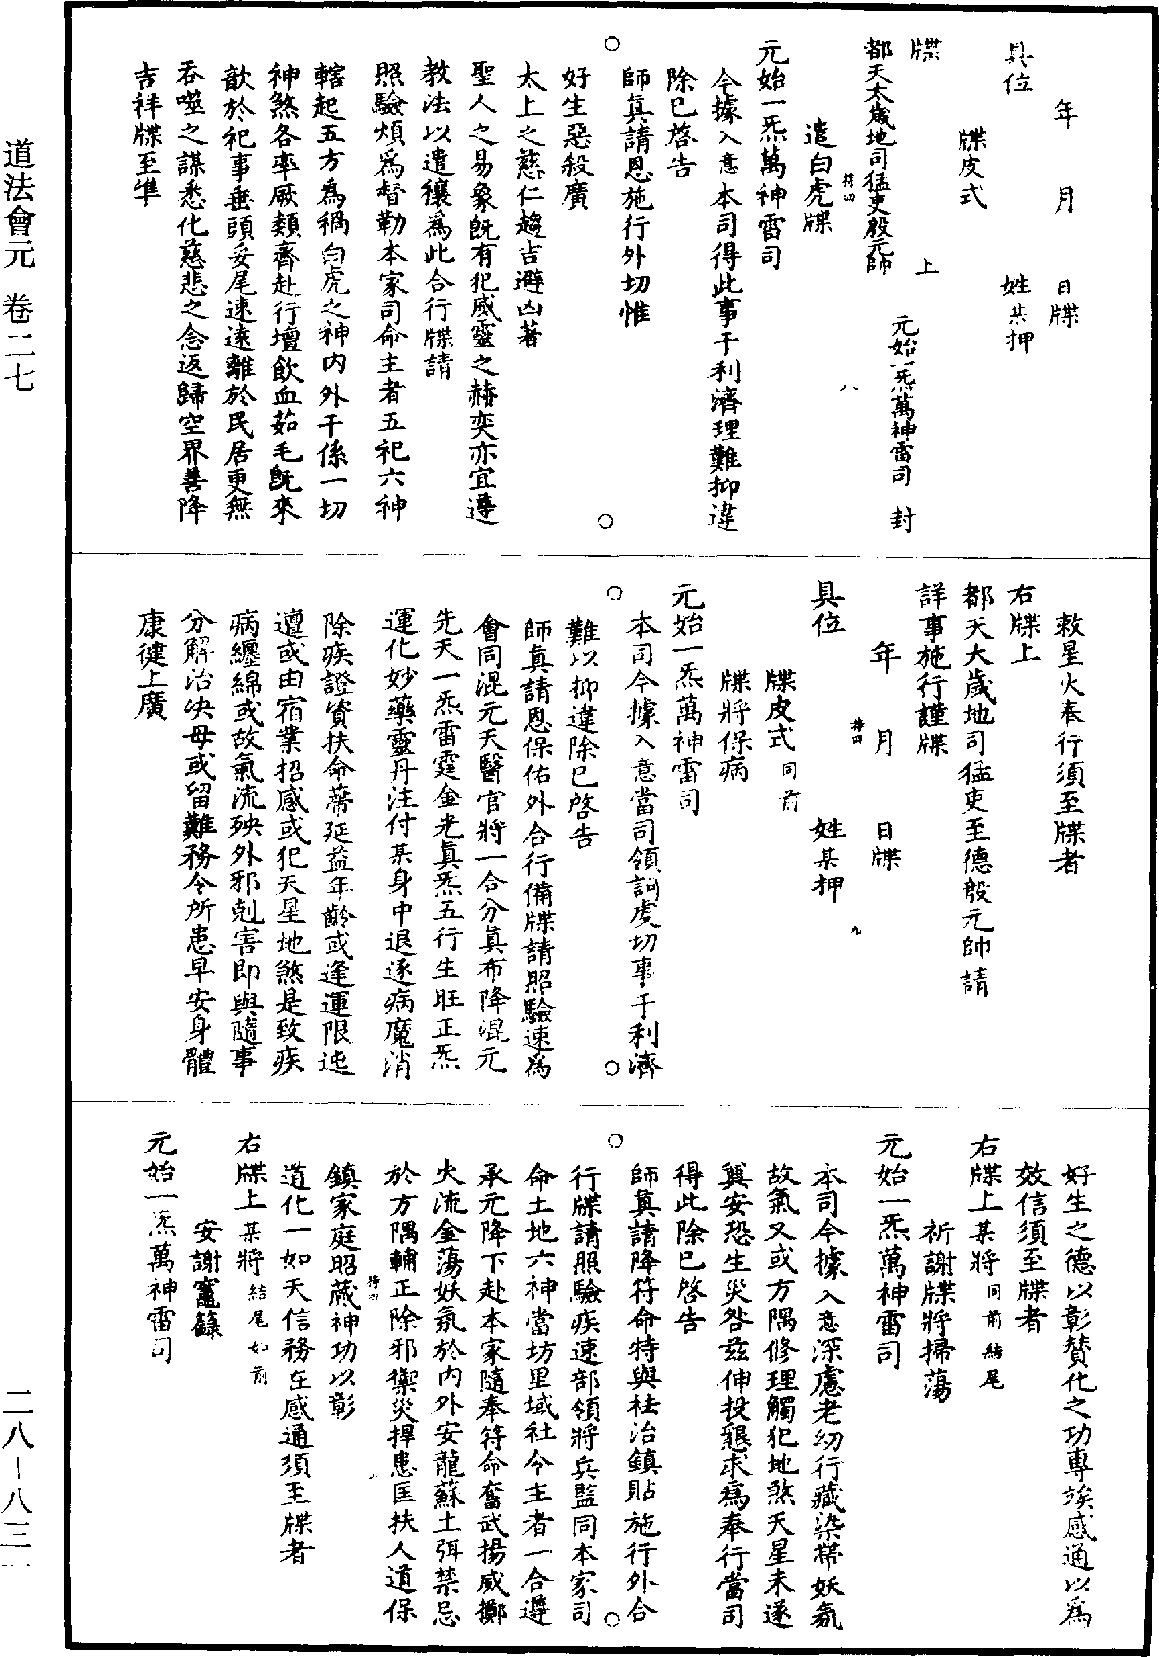 年　月　日牒
具位　姓某押
牒皮式
牒　上
都天太歲地司猛吏殷元帥　元始一炁萬神雷司　封
遣白虎牒
元始一炁萬神雷司
今據入意本司得此事干利濟理難抑違
除已啓告
師真請恩施行外切惟
好生惡殺廣
太上之慈仁趨吉避凶著
聖人之易象旣有犯威靈之赫奕亦宜遵
教法以遣禳爲此合行牒請
照驗煩爲督勒本家司命主者五祀六神
轄起五方爲禍白虎之神內外干係一切
神煞各率厥類齊赴行壇飲血茹毛旣來
歆於祀事垂頭妥尾速遠離於民居更無
吞噬之謀悉化慈悲之念返歸空界善降
吉祥牒至準
敕星火奉行須至牒者
右牒上
都天大歲地司猛吏至德殷元帥請
詳事施行謹牒
年　月　日牒
具位　姓某押
牒皮式同前
牒將保病
元始一炁萬神雷司
本司今據入意當司領詞虔切事干利濟
難以抑違除已啓告
師真請恩保佑外合行備牒請照驗速爲
會同混元天醫官將一合分真布降混元
先天一炁雷霆金光真炁五行生旺正炁
運化妙藥靈丹注付某身中退逐病魔消
除疾證資扶命蒂延益年齡或逢運限迍
邅或由宿業招感或犯天星地煞是致疾
病纏綿或故氣流殃外邪剋害即與隨事
分解治決毋或留難務令所患早安身體
康健上廣
好生之德以彰贊化之功專竢感通以爲
效信須至牒者
右牒上某將同前結尾
祈謝牒將掃蕩
元始一炁萬神雷司
本司今據入意深慮老幼行藏染帶妖氛
故氣又或方隅修理觸犯地煞天星未遂
冀安恐生災咎茲伸投懇求爲奉行當司
得此除已啓告
師真請降符命特與袪治鎮貼施行外合
行牒請照驗疾速部領將兵監同本家司
命土地六神當坊里域社令主者一合遵
承元降下赴本家隨奉符命奮武揚威擲
火流金蕩妖氛於內外安龍蘇土弭禁忌
於方隅輔正除邪禦災捍患匡扶人道保
鎮家庭昭蕆神功以彰
道化一如天信務在感通須至牒者
右牒上某將結尾如前
安謝竈籙
元始一炁萬神雷司
道法會元　卷二七
二八－八三一